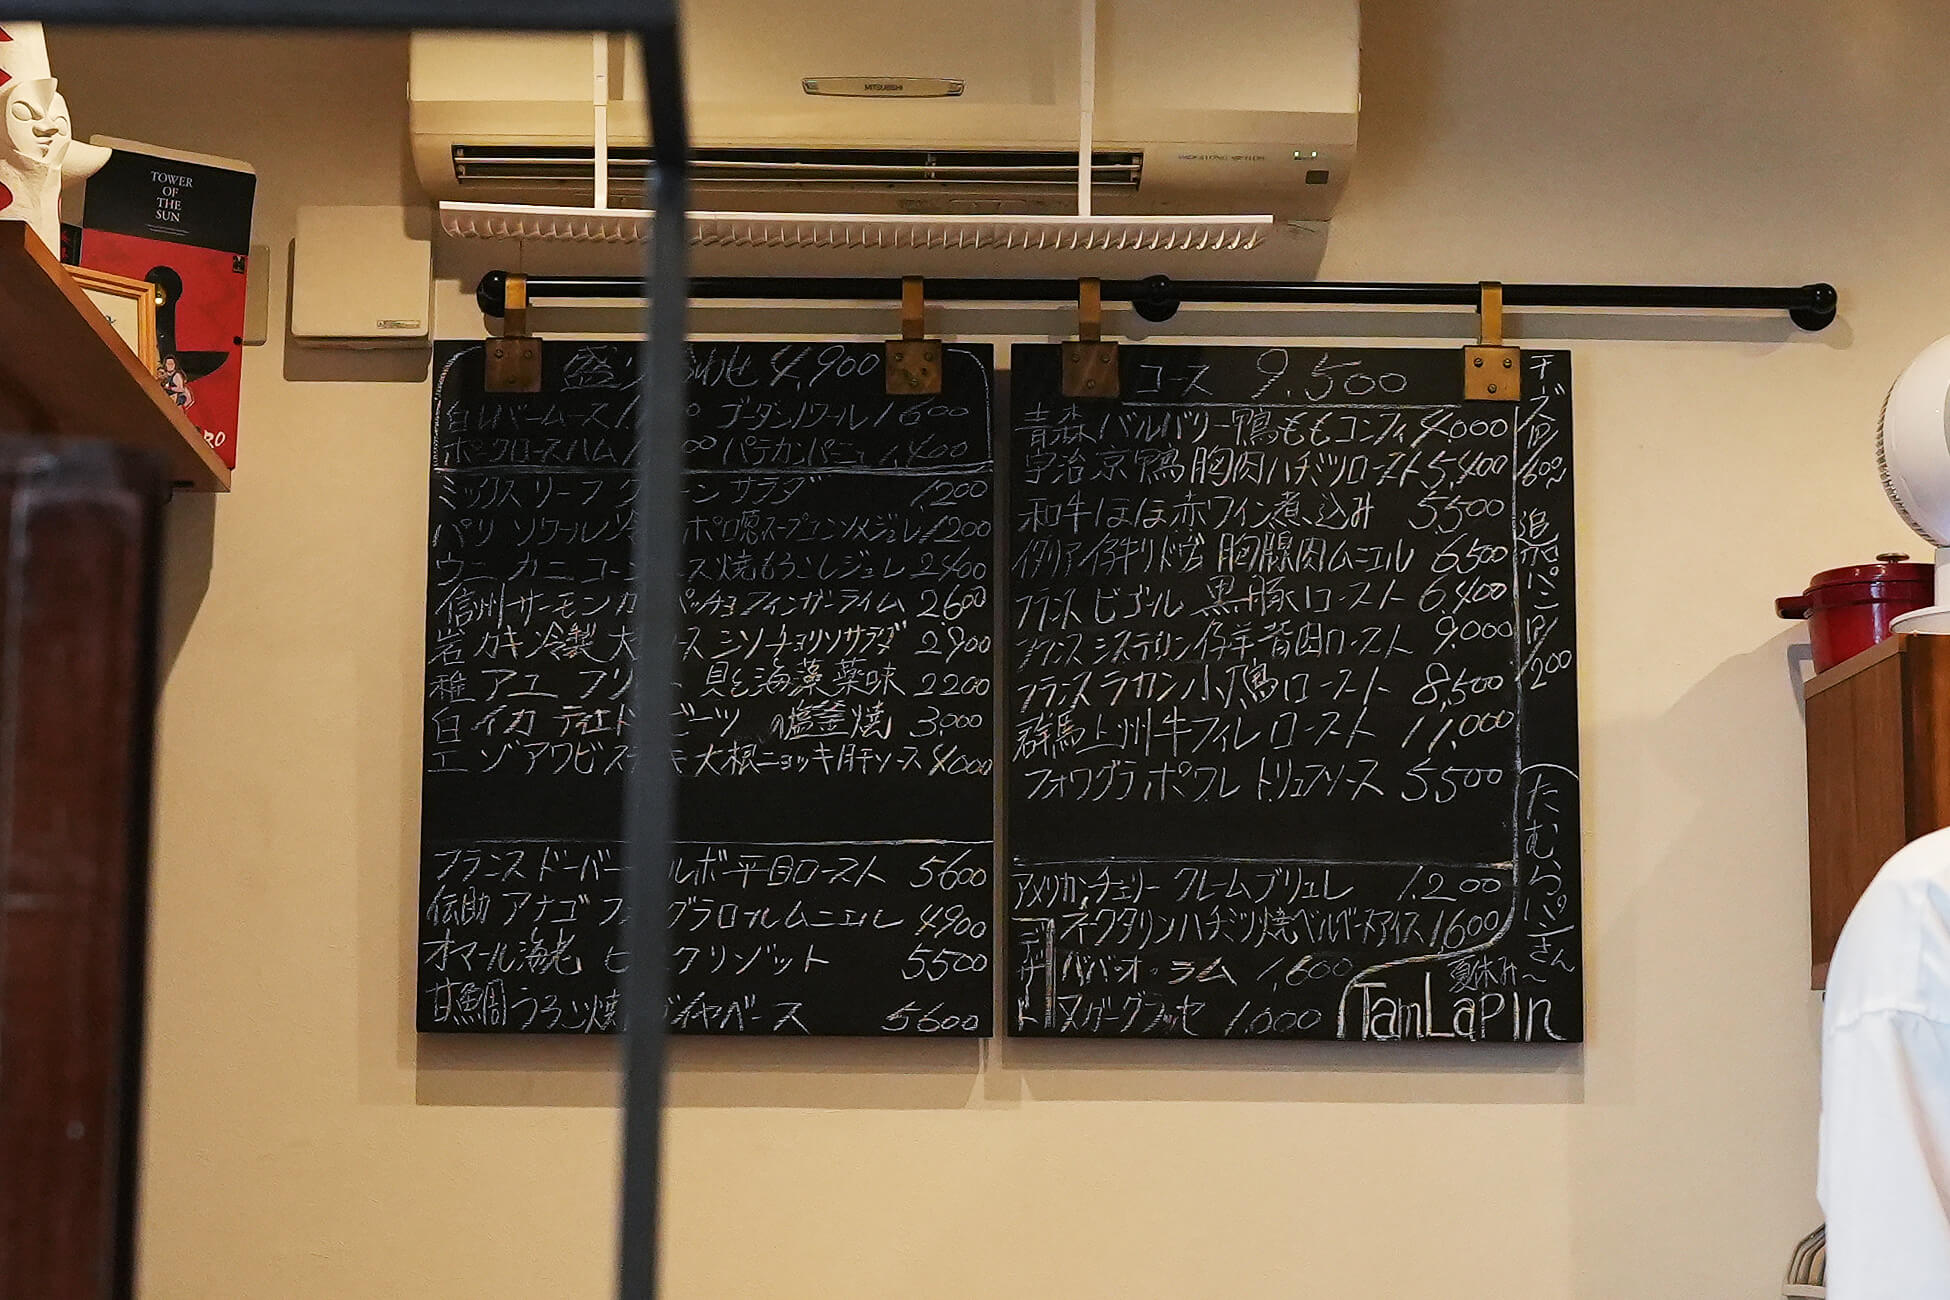 MITSUBISHI
TOWER
OF
THE
SUN
盛り合わせ 4,900
白レバームース ゴーダンソワール 1600
ポークロースハム パテカンパーニュ 1,400
ミックスリーフ グリーン サラダ 1,200
パリ ソワール 冷 ポロ葱スープコンソメジュレ 1200
ウニ カニ コーン ース 焼もろこしジュレ 2400
信州サーモン カルパッチョ フィンガーライム 2,600
岩カキ 冷製 大 ース ニソチョリソサラダ 2,900
稚アユ フリ 貝と海藻薬味 2200
白イカ ビーツ の塩釜焼 3,000
エゾアワビステーキ 大根ニョッキ 肝ソース 4000
フランス ドーバー ルボ 平目ロースト 5600
伝助アナゴ フォアグラロール ムニエル 4900
オマール海老 ビスクリゾット 5500
甘鯛うろこ焼 ブイヤベース 5600
コース 9,500
青森バルバリー鴨ももコンフィ 4,000
宇治京鴨胸肉ハチミツロースト 5,400
和牛ほほ赤ワイン煮込み 5,500
イタリア仔牛リドヴォ 胸腺肉ムニエル 6,500
フランス ビゴール 黒豚ロースト 6,400
フランス システロン仔羊背肉ロースト 9,000
フランス ラカン小鳩ロースト 8,500
群馬上州牛フィレロースト 11,000
フォワグラポワレ トリュフソース 5,500
アメリカンチェリー クレームブリュレ 1,200
デザート
ネクタリンハチミツ焼ベルベーヌアイス 1,600
ババ・オ・ラム 1,600
ヌガーグラッセ 1,000
チーズ1P/600〜
追加パン1P/200
たむらパンさん
夏休み〜
TamLapin